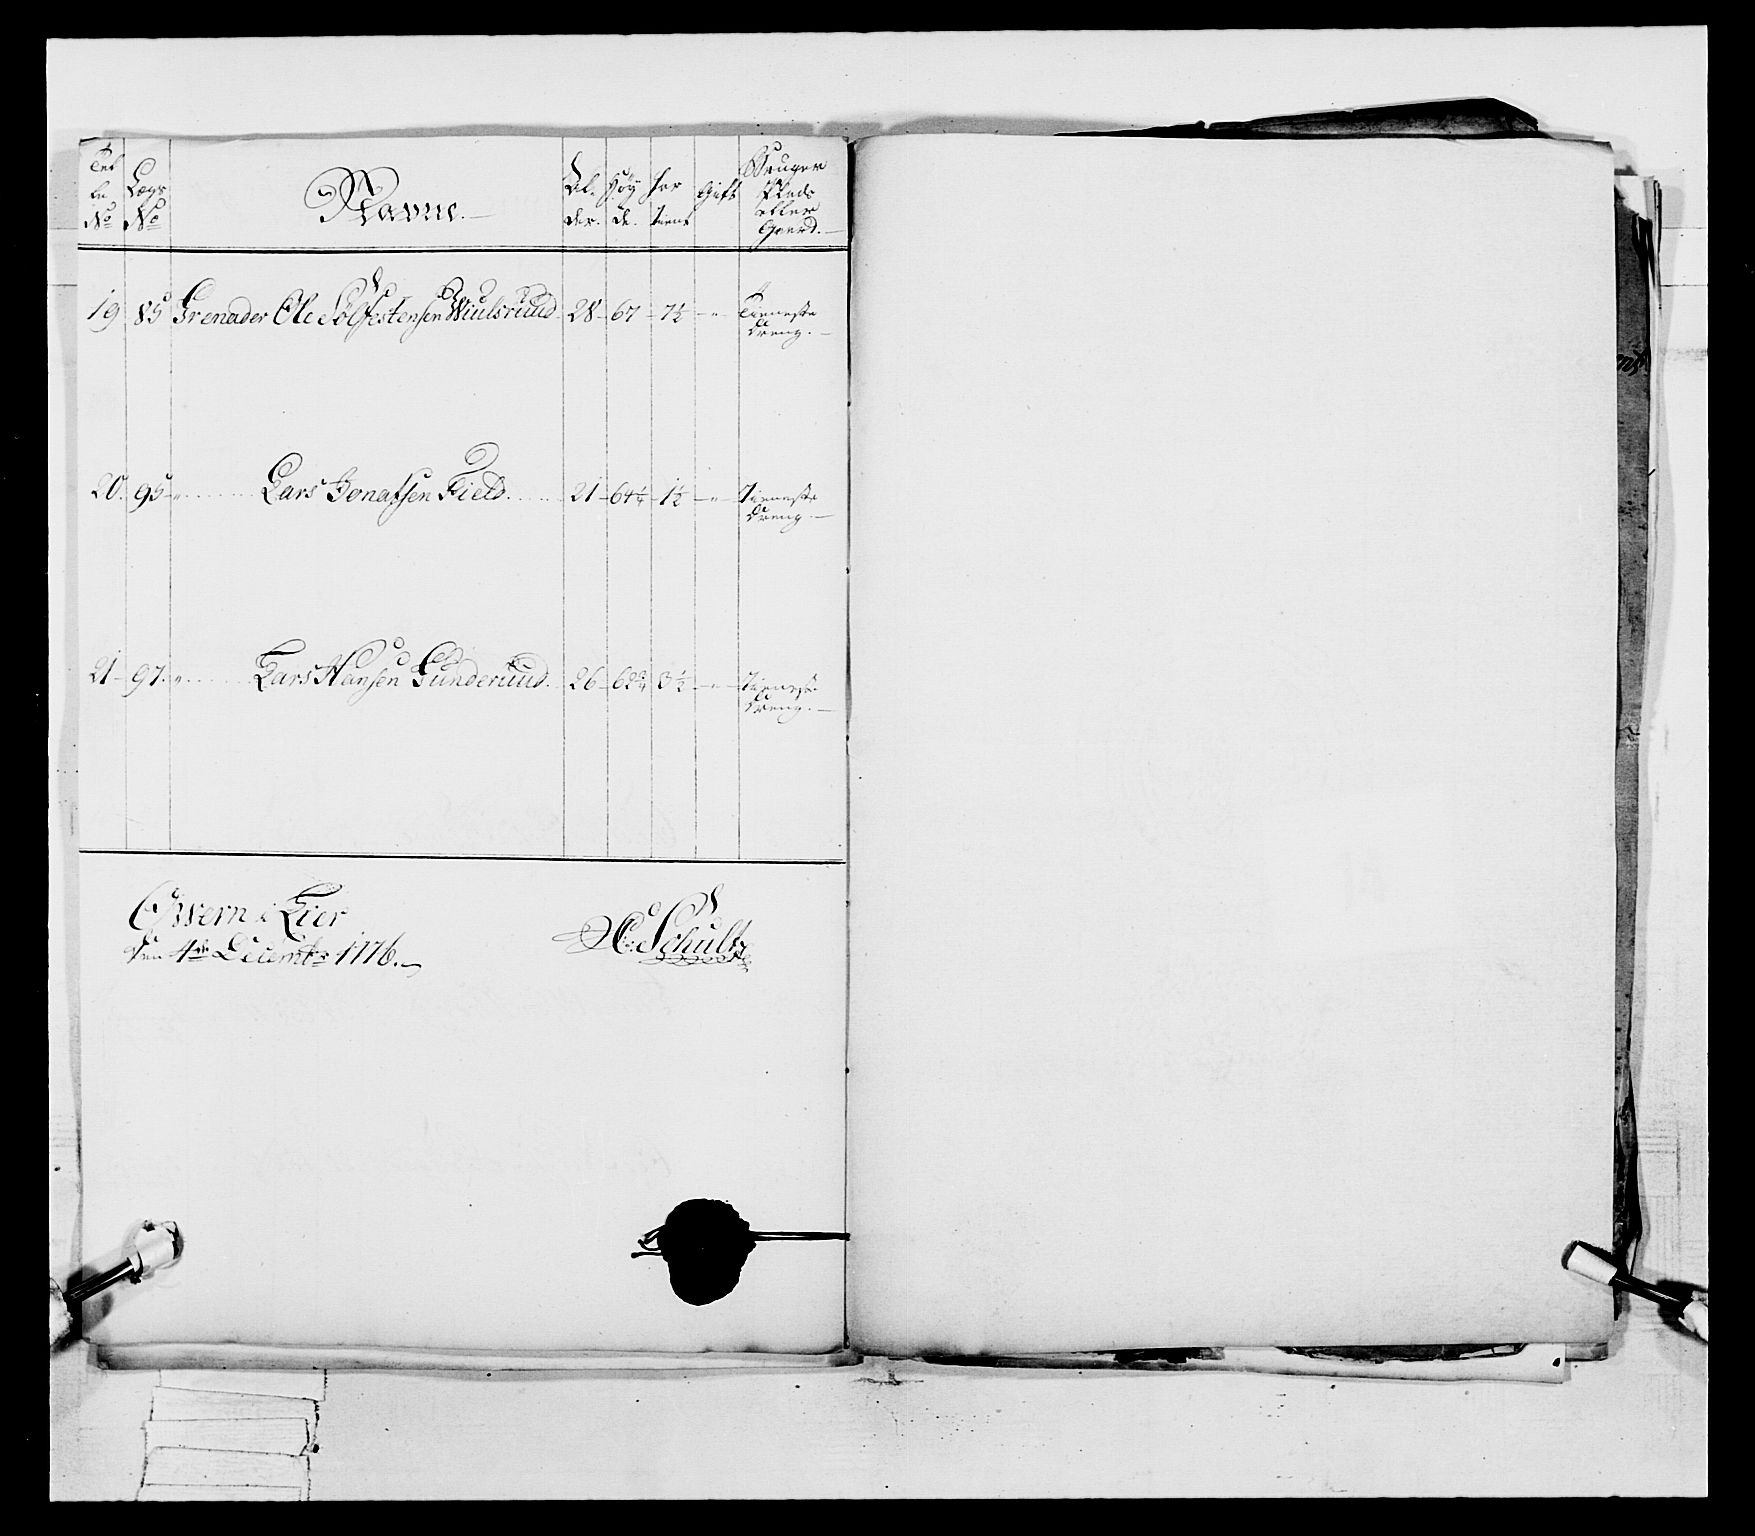 No Lægs No Navne. Alder. Høyde. har tient Gift Bruger Plads eller Gaard.
19 85 Grenader Ole Solfestensen Wiulsruud 28 67 7½ " Tieneste dreng.
20. 95 " Lars Jonassen Field. 21 64¼ 1½ " Tieneste dreng.
21 97. " Lars Hansen Gunderuud. 26 62¾ 3½ " Tieneste dreng.
i Lier
den 4de Decembr 1776.
HC. Schultz